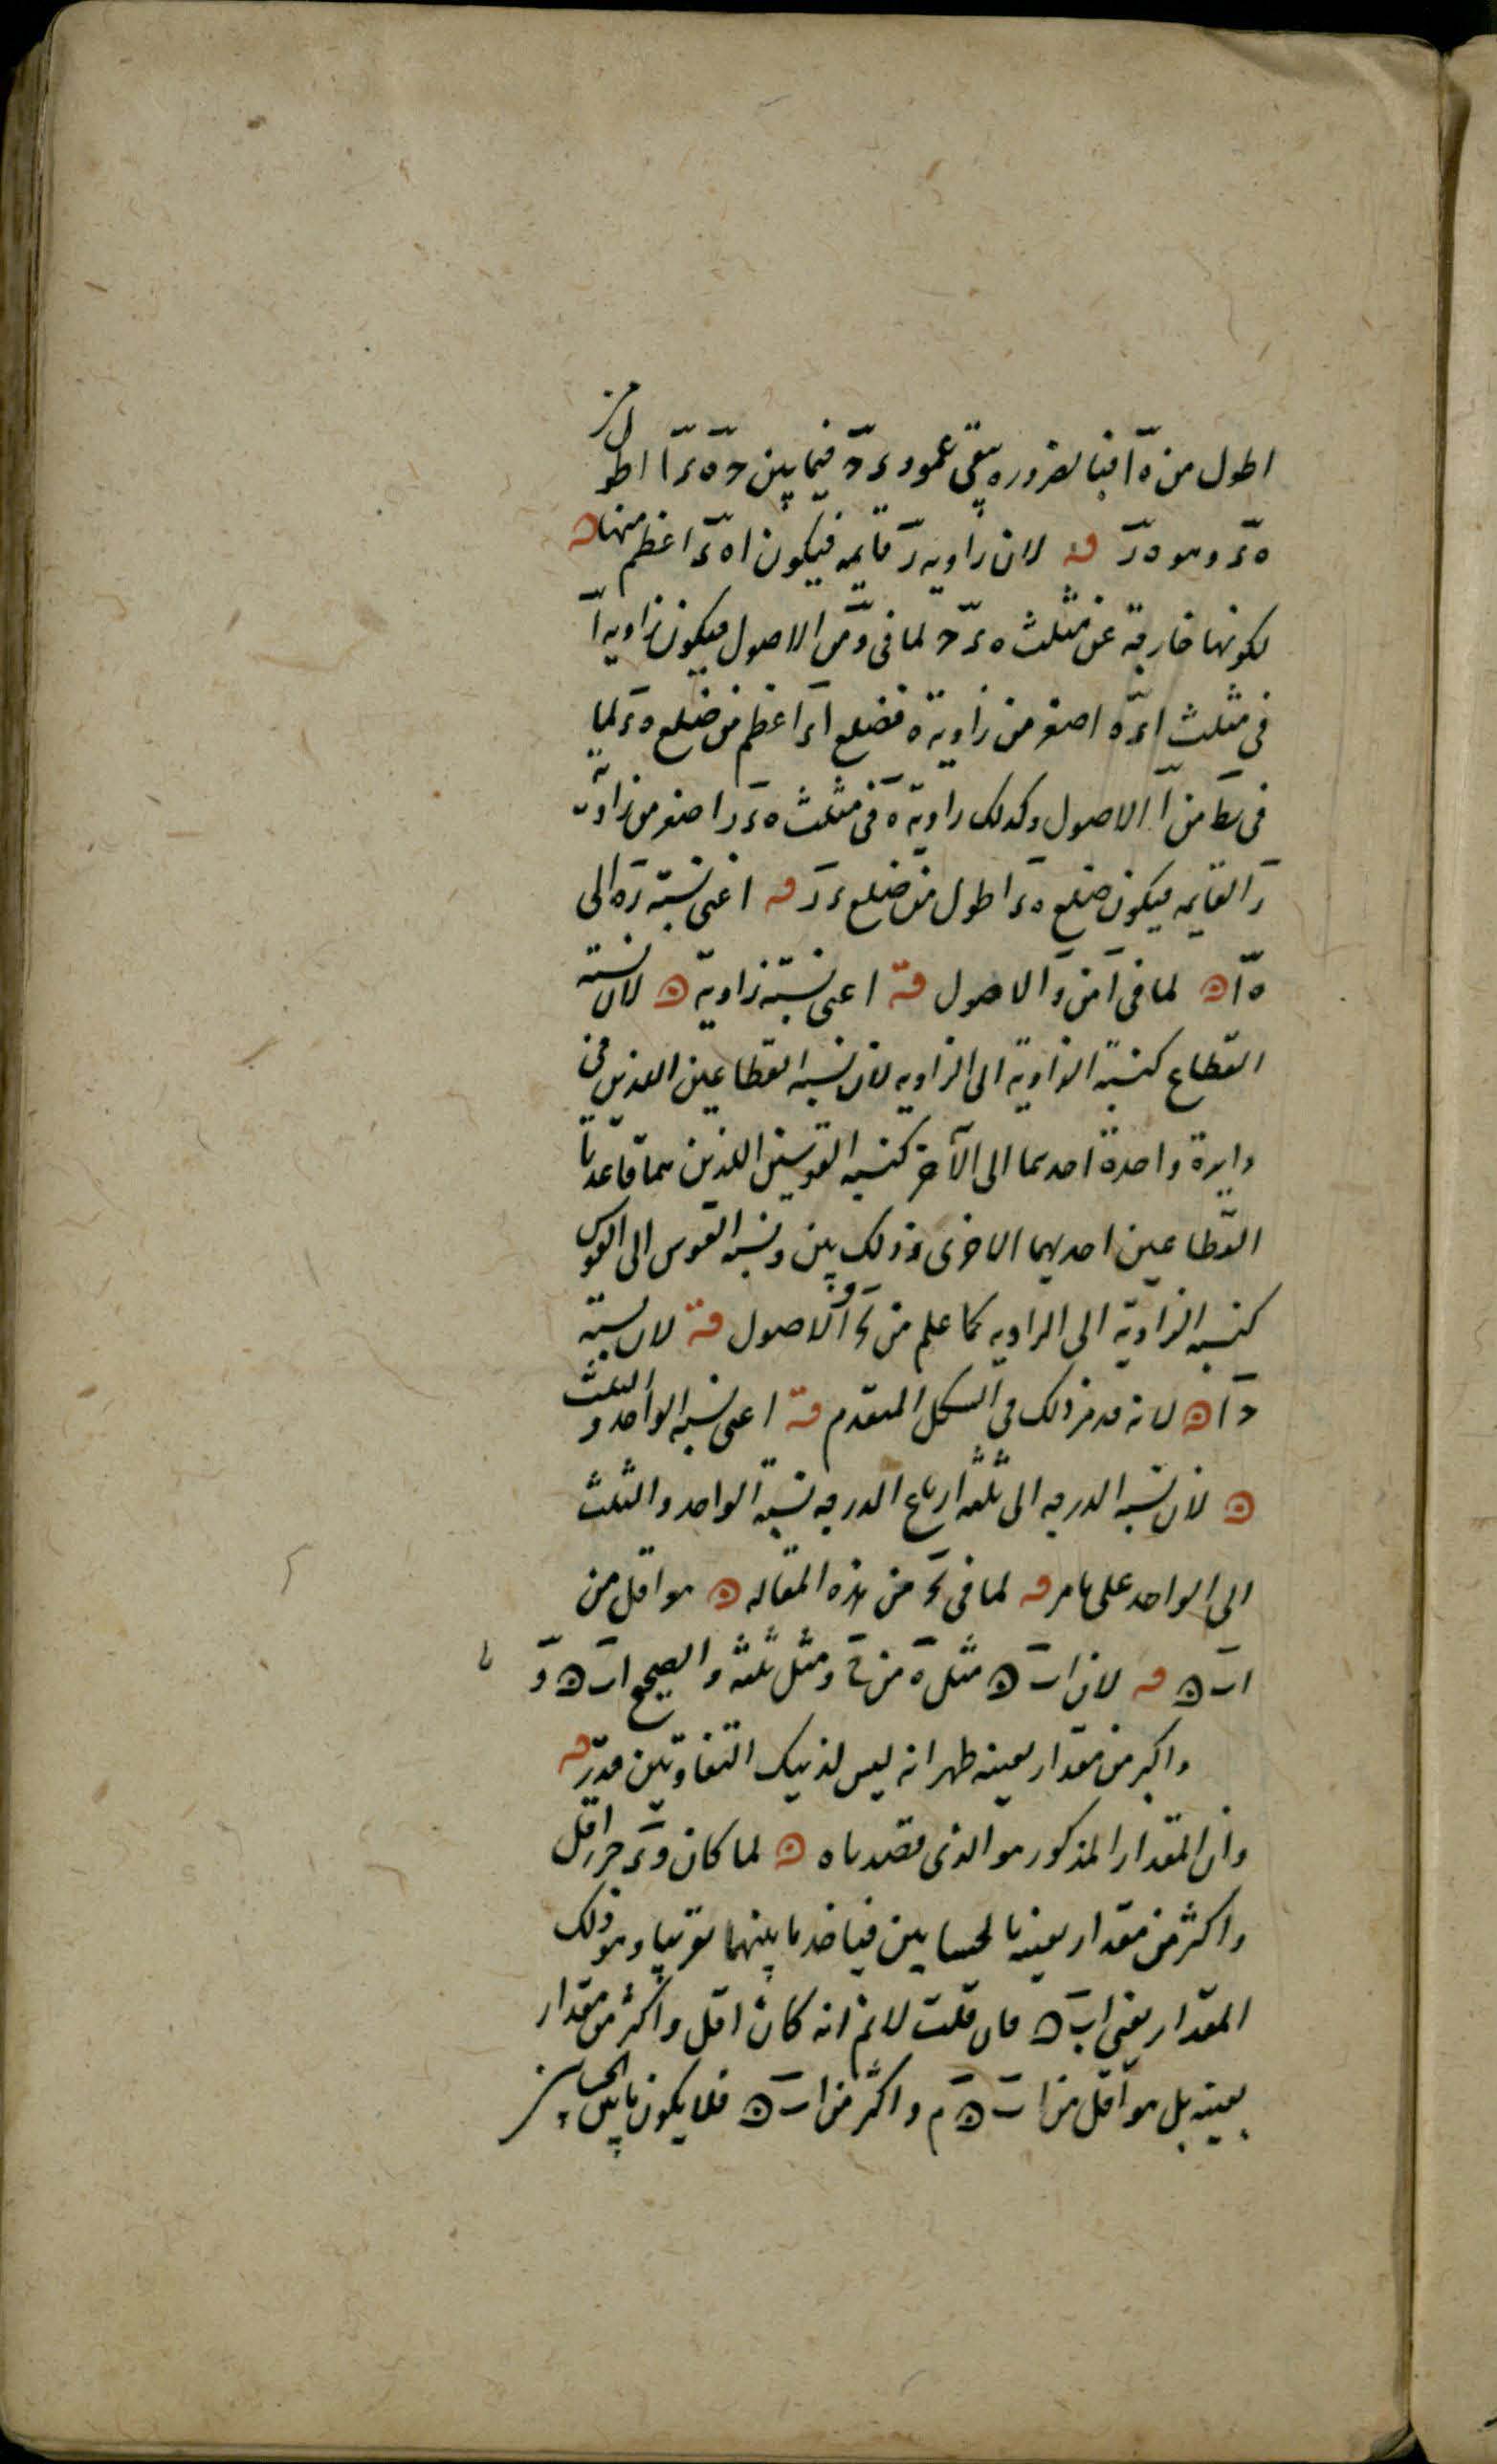 اطول من ه ا فبالضروره يقى عمود ى د فيما بين د ه ى ا اطول من
ه ى وهو ه ر قه لان زاويه ر قايمه فيكون ا ه ى اعظم منها
لكونها خارجة عن مثلث ه ى د لما فى و من الاصول فيكون زاويه ا
فى مثلث ا ى ه اصغر من زاوية ه فضلع ا ى اعظم من ضلع ه ى لما
فى يط من ا الاصول وكدلك زاوية ه فى مثلث ه ى ر اصغر من زاوية
ر القايمه فيكون ضلع ه ى اطول من ضلع ى ر قه اعنى نسبة ر ه الى
ه ا ه لما فى ا من و الاصول قه اعنى نسبة زاوية ه لان نسبة
القطاع كنسبة الزاوية الى الزاويه لان نسبه القطاعين اللذين فى
دايرة واحدة احدهما الى الآخر كنسبه القوسين اللذين هما قاعدتا
القطاعين احديهما الاخرى وذلك بين ونسبه القوس الى القوس
كنسبه الزاوية الى الزاويه كما علم من الاصول قه لان نسبة
د ا ه لانه قد مر ذلك فى الشكل المتقدم قه اعنى نسبه الواحد والثلث
ه لان نسبه الدرجه الى ثلثه ارباع الدرجه نسبة الواحد والثلث
الى الواحد على ما مر قه لما فى من هذه المقاله ه هو اقل من
ا ب ه قه لان ا ب ه مثل ه من ومثل ثلثه والصحيح ا ب ه و
واكبر من مقدار بعينه ظهر انه ليس لذينك التفاوتين قدر قه
وان المقدار المذكور هو الذى قصدناه ه لما كان وتر جزء اقل
واكثر من مقدار بعينه بالحسابين فياخذ ما بينهما تقريبا وهو ذلك
المقدار يعنى ا ب ه فان قلت لا نم انه كان اقل واكثر من مقدار
بعينه بل هو اقل من ا ب ه م واكثر من ا ب ه فلا يكون ما بين الحسابين